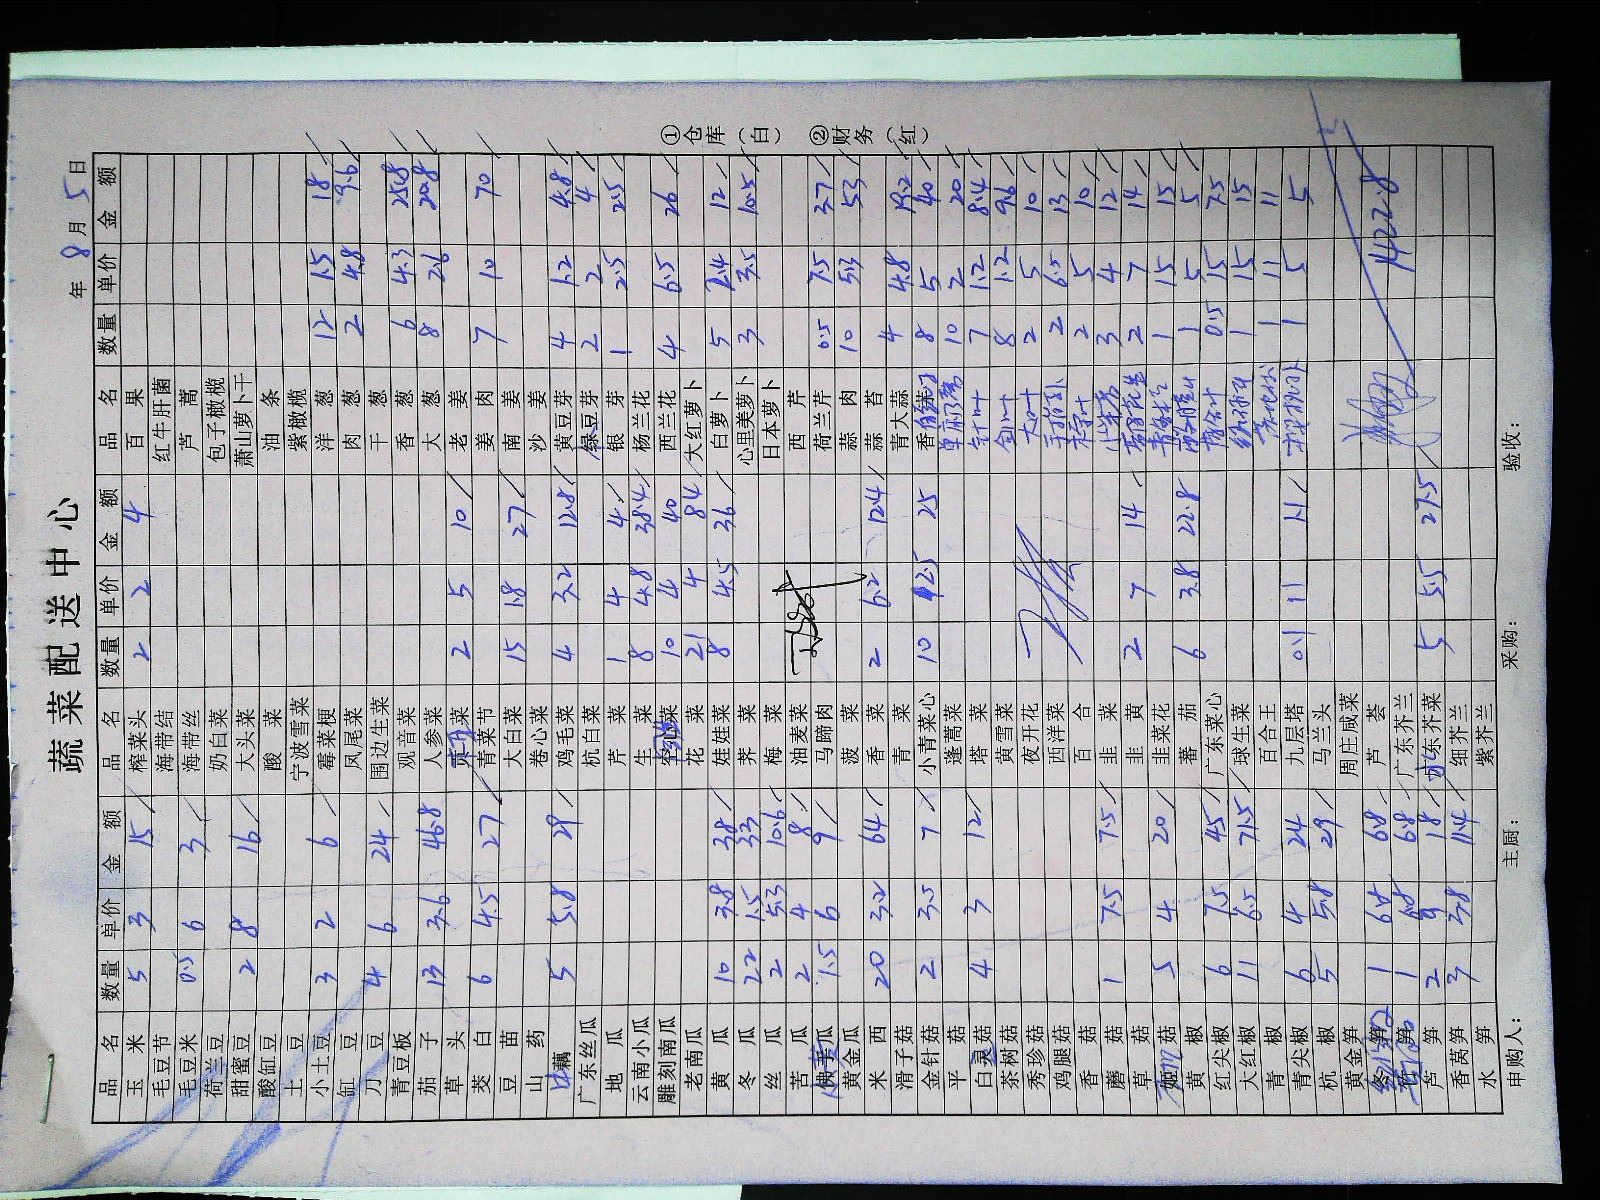 蔬菜配送中心
年 8 月 5 日
品名 数量 单价 金额 品名 数量 单价 金额 品名 数量 单价 金额
玉米 5 3 15 榨菜头 2 2 4 百果
毛豆节 海带结 红牛肝菌
毛豆米 0.5 6 3 海带丝 芦蒿
荷兰豆 奶白菜 包子橄榄
甜蜜豆 2 8 16 大头菜 萧山萝卜干
酸缸豆 酸菜 油条
土豆 宁波雪菜 紫橄榄
小土豆 3 2 6 霉菜梗 洋葱 12 1.5 18
缸豆 凤尾菜 肉葱 2 4.8 9.6
刀豆 4 6 24 围边生菜 干葱
青豆板 观音菜 香葱 6 4.3 25.8
茄子 13 3.6 46.8 人参菜 大葱 8 2.6 20.8
草头 菜 2 5 10 老姜
茭白 6 4.5 27 青菜节 姜肉 7 10 70
豆苗 大白菜 15 1.8 27 南姜
山药 卷心菜 沙姜
藕 5 5.8 29 鸡毛菜 4 3.2 12.8 黄豆芽 4 1.2 4.8
广东丝瓜 杭白菜 绿豆芽 2 2 4
地瓜 芹菜 1 4 4 银芽 1 2.5 2.5
云南小瓜 生菜 8 4.8 38.4 杨兰花
雕刻南瓜 空心菜 10 4 40 西兰花 4 6.5 26
老南瓜 花菜 21 4 84 大红萝卜
黄瓜 10 3.8 38 娃娃菜 8 4.5 36 白萝卜 5 2.4 12
冬瓜 22 1.5 33 荠菜 心里美萝卜 3 3.5 10.5
丝瓜 2 5.3 10.6 梅菜 日本萝卜
苦瓜 2 4 8 油麦菜 西芹
佛手瓜 1.5 6 9 马蹄肉 荷兰芹 0.5 7.5 3.7
黄金瓜 菠菜 蒜肉 10 5.3 53
米西 20 3.2 64 香菜 2 6.2 12.4 蒜苔
滑子菇 青菜 青大蒜 4 4.8 19.2
金针菇 2 3.5 7 小青菜心 10 2.5 25 香 8 5 40
平菇 蓬蒿菜 10 2 20
白灵菇 4 3 12 塔菜 7 1.2 8.4
茶树菇 黄雪菜 8 1.2 9.6
秀珍菇 夜开花 2 5 10
鸡腿菇 西洋菜 2 6.5 13
香菇 百合 2 5 10
蘑菇 1 7.5 7.5 韭菜 3 4 12
草菇 韭黄 2 7 14 2 7 14
姬菇 5 4 20 韭菜花 1 15 15
黄椒 蕃茄 6 3.8 22.8 1 5 5
红尖椒 6 7.5 45 广东菜心 0.5 15 7.5
大红椒 11 6.5 71.5 球生菜 1 15 15
青椒 百合王 1 11 11
青尖椒 6 4 24 九层塔 0.1 11 1.1 1 5 5
杭椒 5 5.8 29 马兰头
黄金笋 周庄咸菜
笋 1 6.8 6.8 芦荟 1422.8
1 6.8 6.8 广东芥兰
芦笋 2 9 18 水东芥菜 5 5.5 27.5
香莴笋 3 3.8 11.4 细芥兰
水笋 紫芥兰
申购人： 主厨： 采购： 验收：
①仓库（白） ②财务（红）